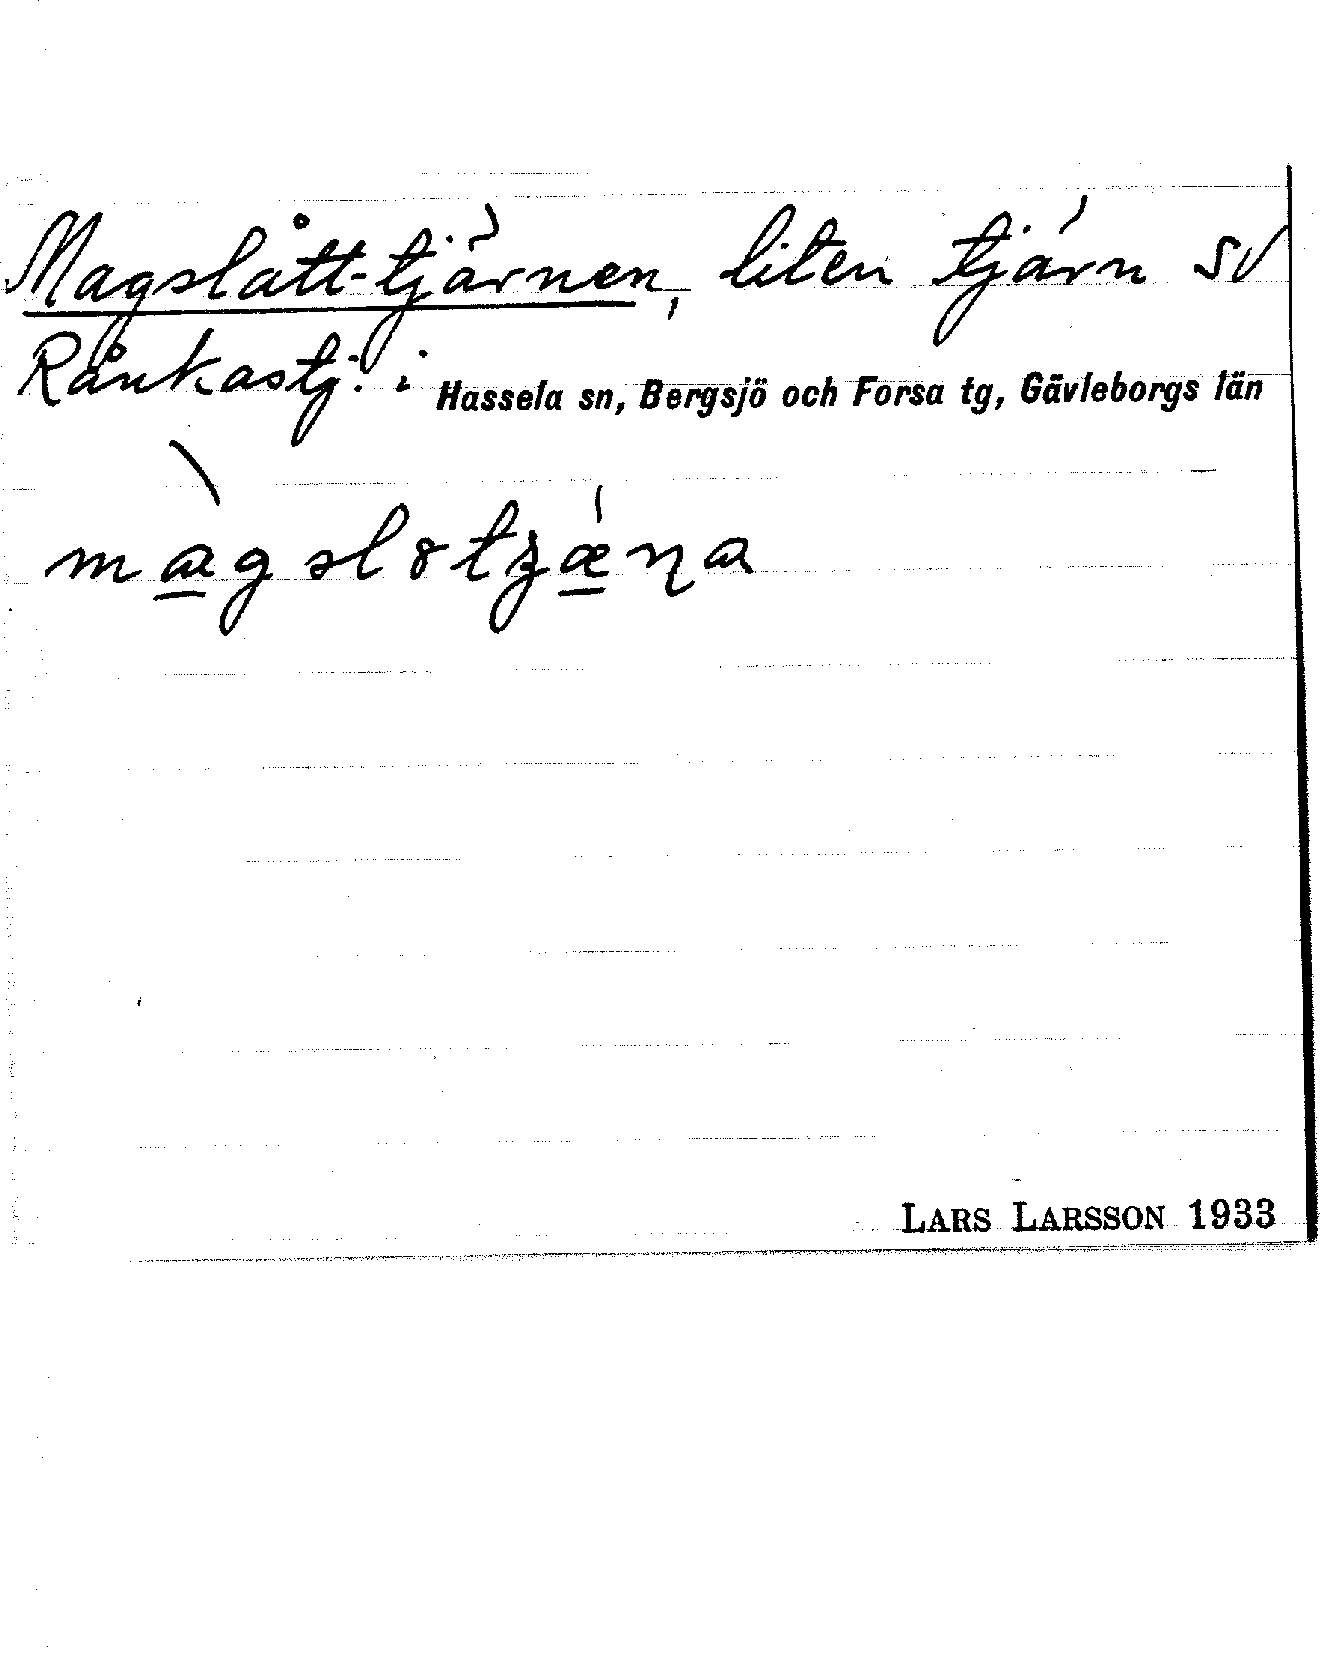 Magslått-tjärnen, liten tjärn SV
Rånkastj. i Hassela sn, Bergsjö och Forsa tg, Gävleborgs län
màgslotʒǽṇa
LARS LARSSON 1933